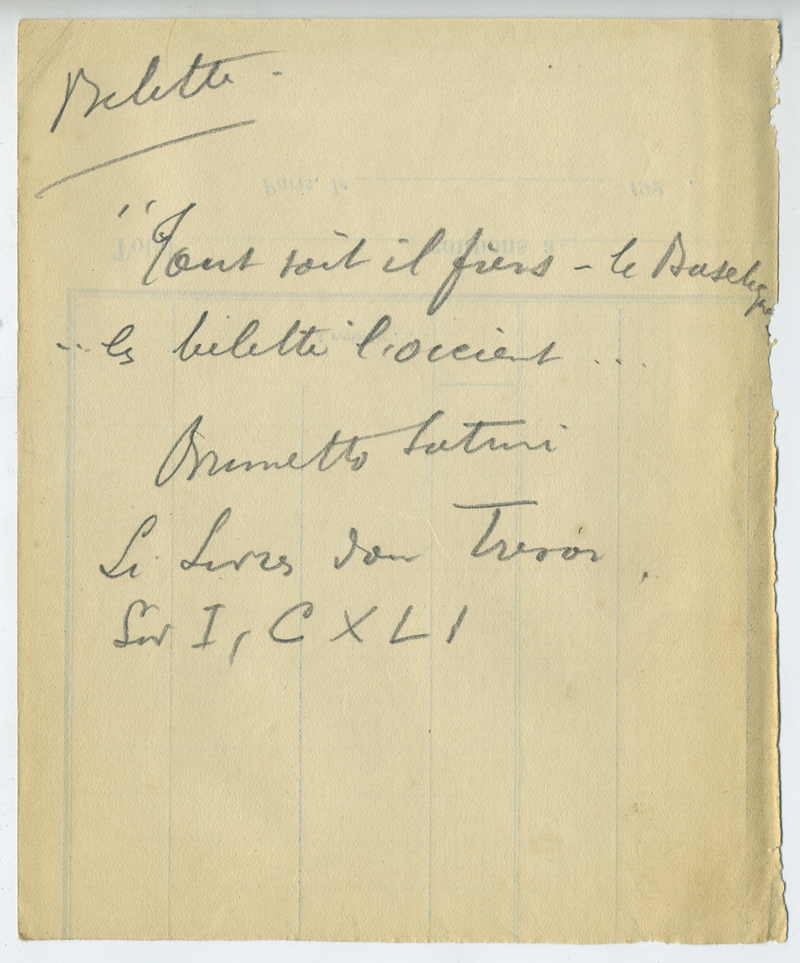 Belette -
"Tout soit il fiers - le Baselique
.. les belette l'occient ...
Brunetto Latini
Li Livres dou Tresor,
Liv I, C X L I
Paris, le 192